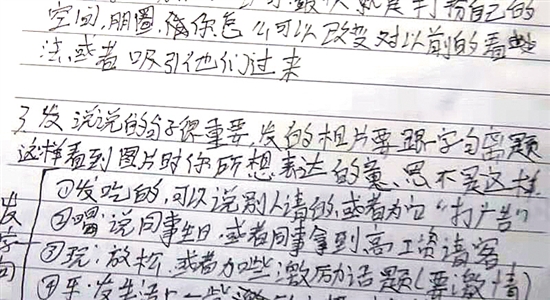 打扮自己的
空间,朋圈,你怎么可以改变对以前的看
法,或者吸引他们过来
3.发说说的句子很重要,发的相片要跟字句离题
这样看到图片时你所想表达的意思不是这样
①发吃的,可以说别人请的,或者为它“打广告”
②喝:说同事生日,或者同事拿到高工资请客
③玩:放松,或者加些激励话题(要激情)
④ 发生活
发字句